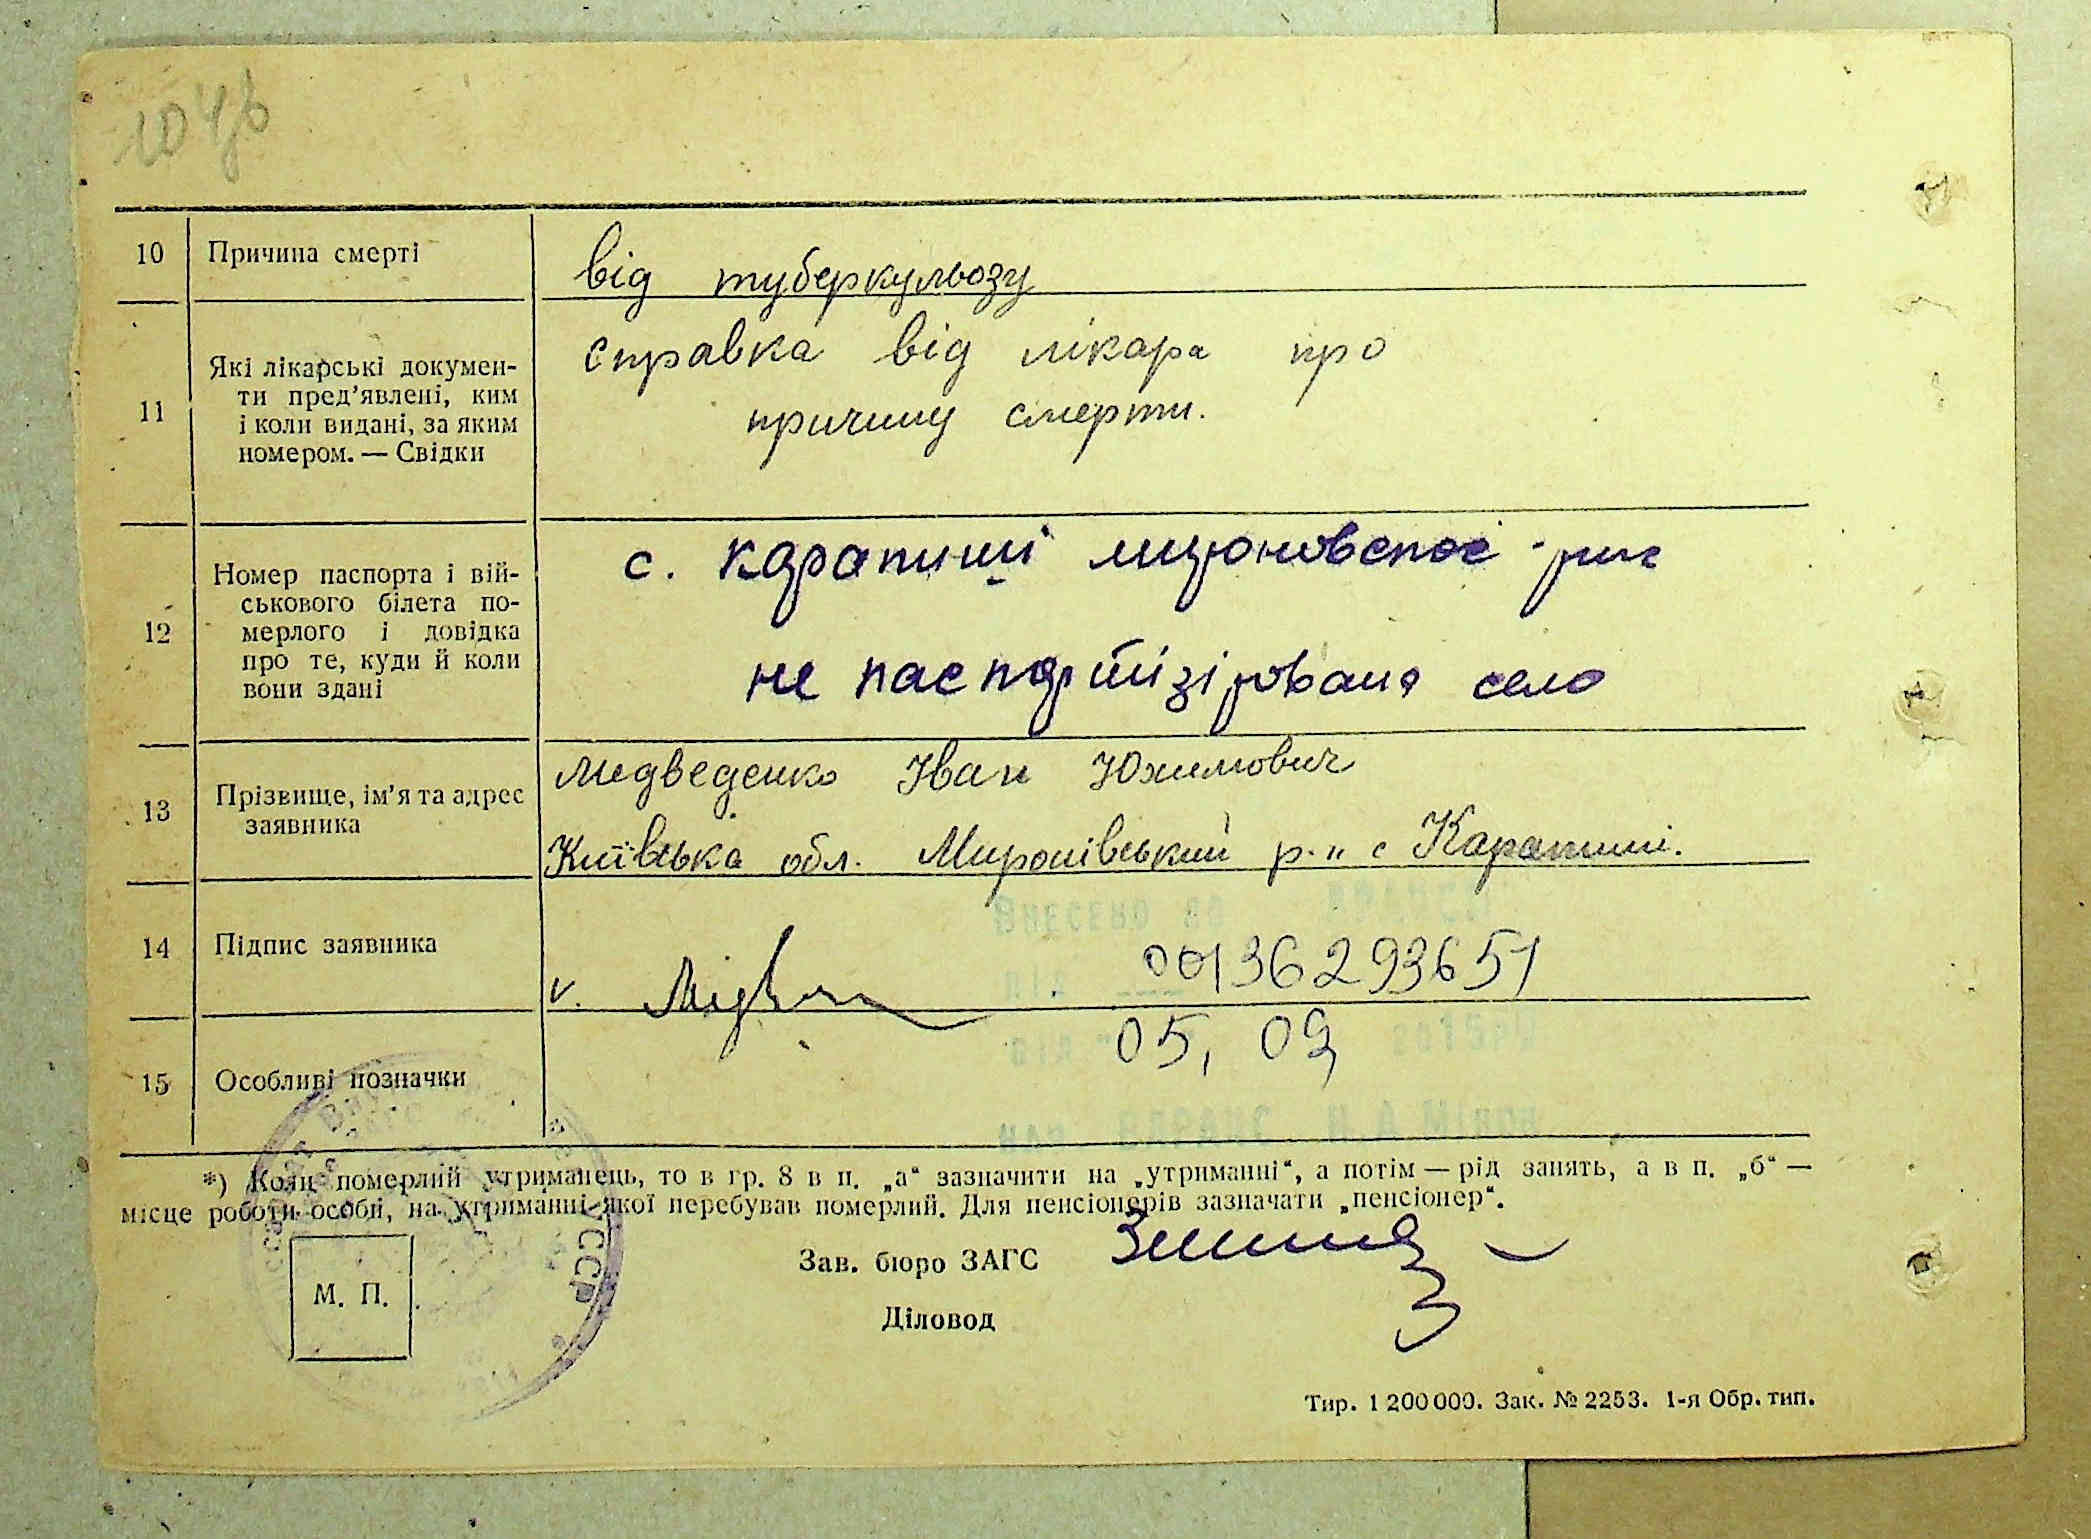 10
Причина смерті
від туберкульозу
11
Які лікарські докумен-
ти пред’явлені, ким
і коли видані, за яким
номером. — Свідки
справка від лікара про
причину смерти.
12
Номер паспорта і вій-
ськового білета по-
мерлого і довідка
про те, куди й коли
вони здані
с. Карапиші мироновскоє
не паспортізірована село
13
Прізвище, ім’я та адрес
заявника
Медведенко Іван Юхимович
Київська обл. Миронівський р.н с Карапиші.
14
Підпис заявника
v.
00136293651
15
Особливі позначки
05, 09
*) Коли померлий утриманець, то в гр. 8 в п. „а“ зазначити на „утриманні“, а потім — рід занять, а в п. „б“ —
місце роботи особи, на утриманні якої перебував померлий. Для пенсіонерів зазначати „пенсіонер“.
УССР
М. П.
Зав. бюро ЗАГС
Діловод
Тир. 1 200 000. Зак. № 2253. 1-я Обр. тип.